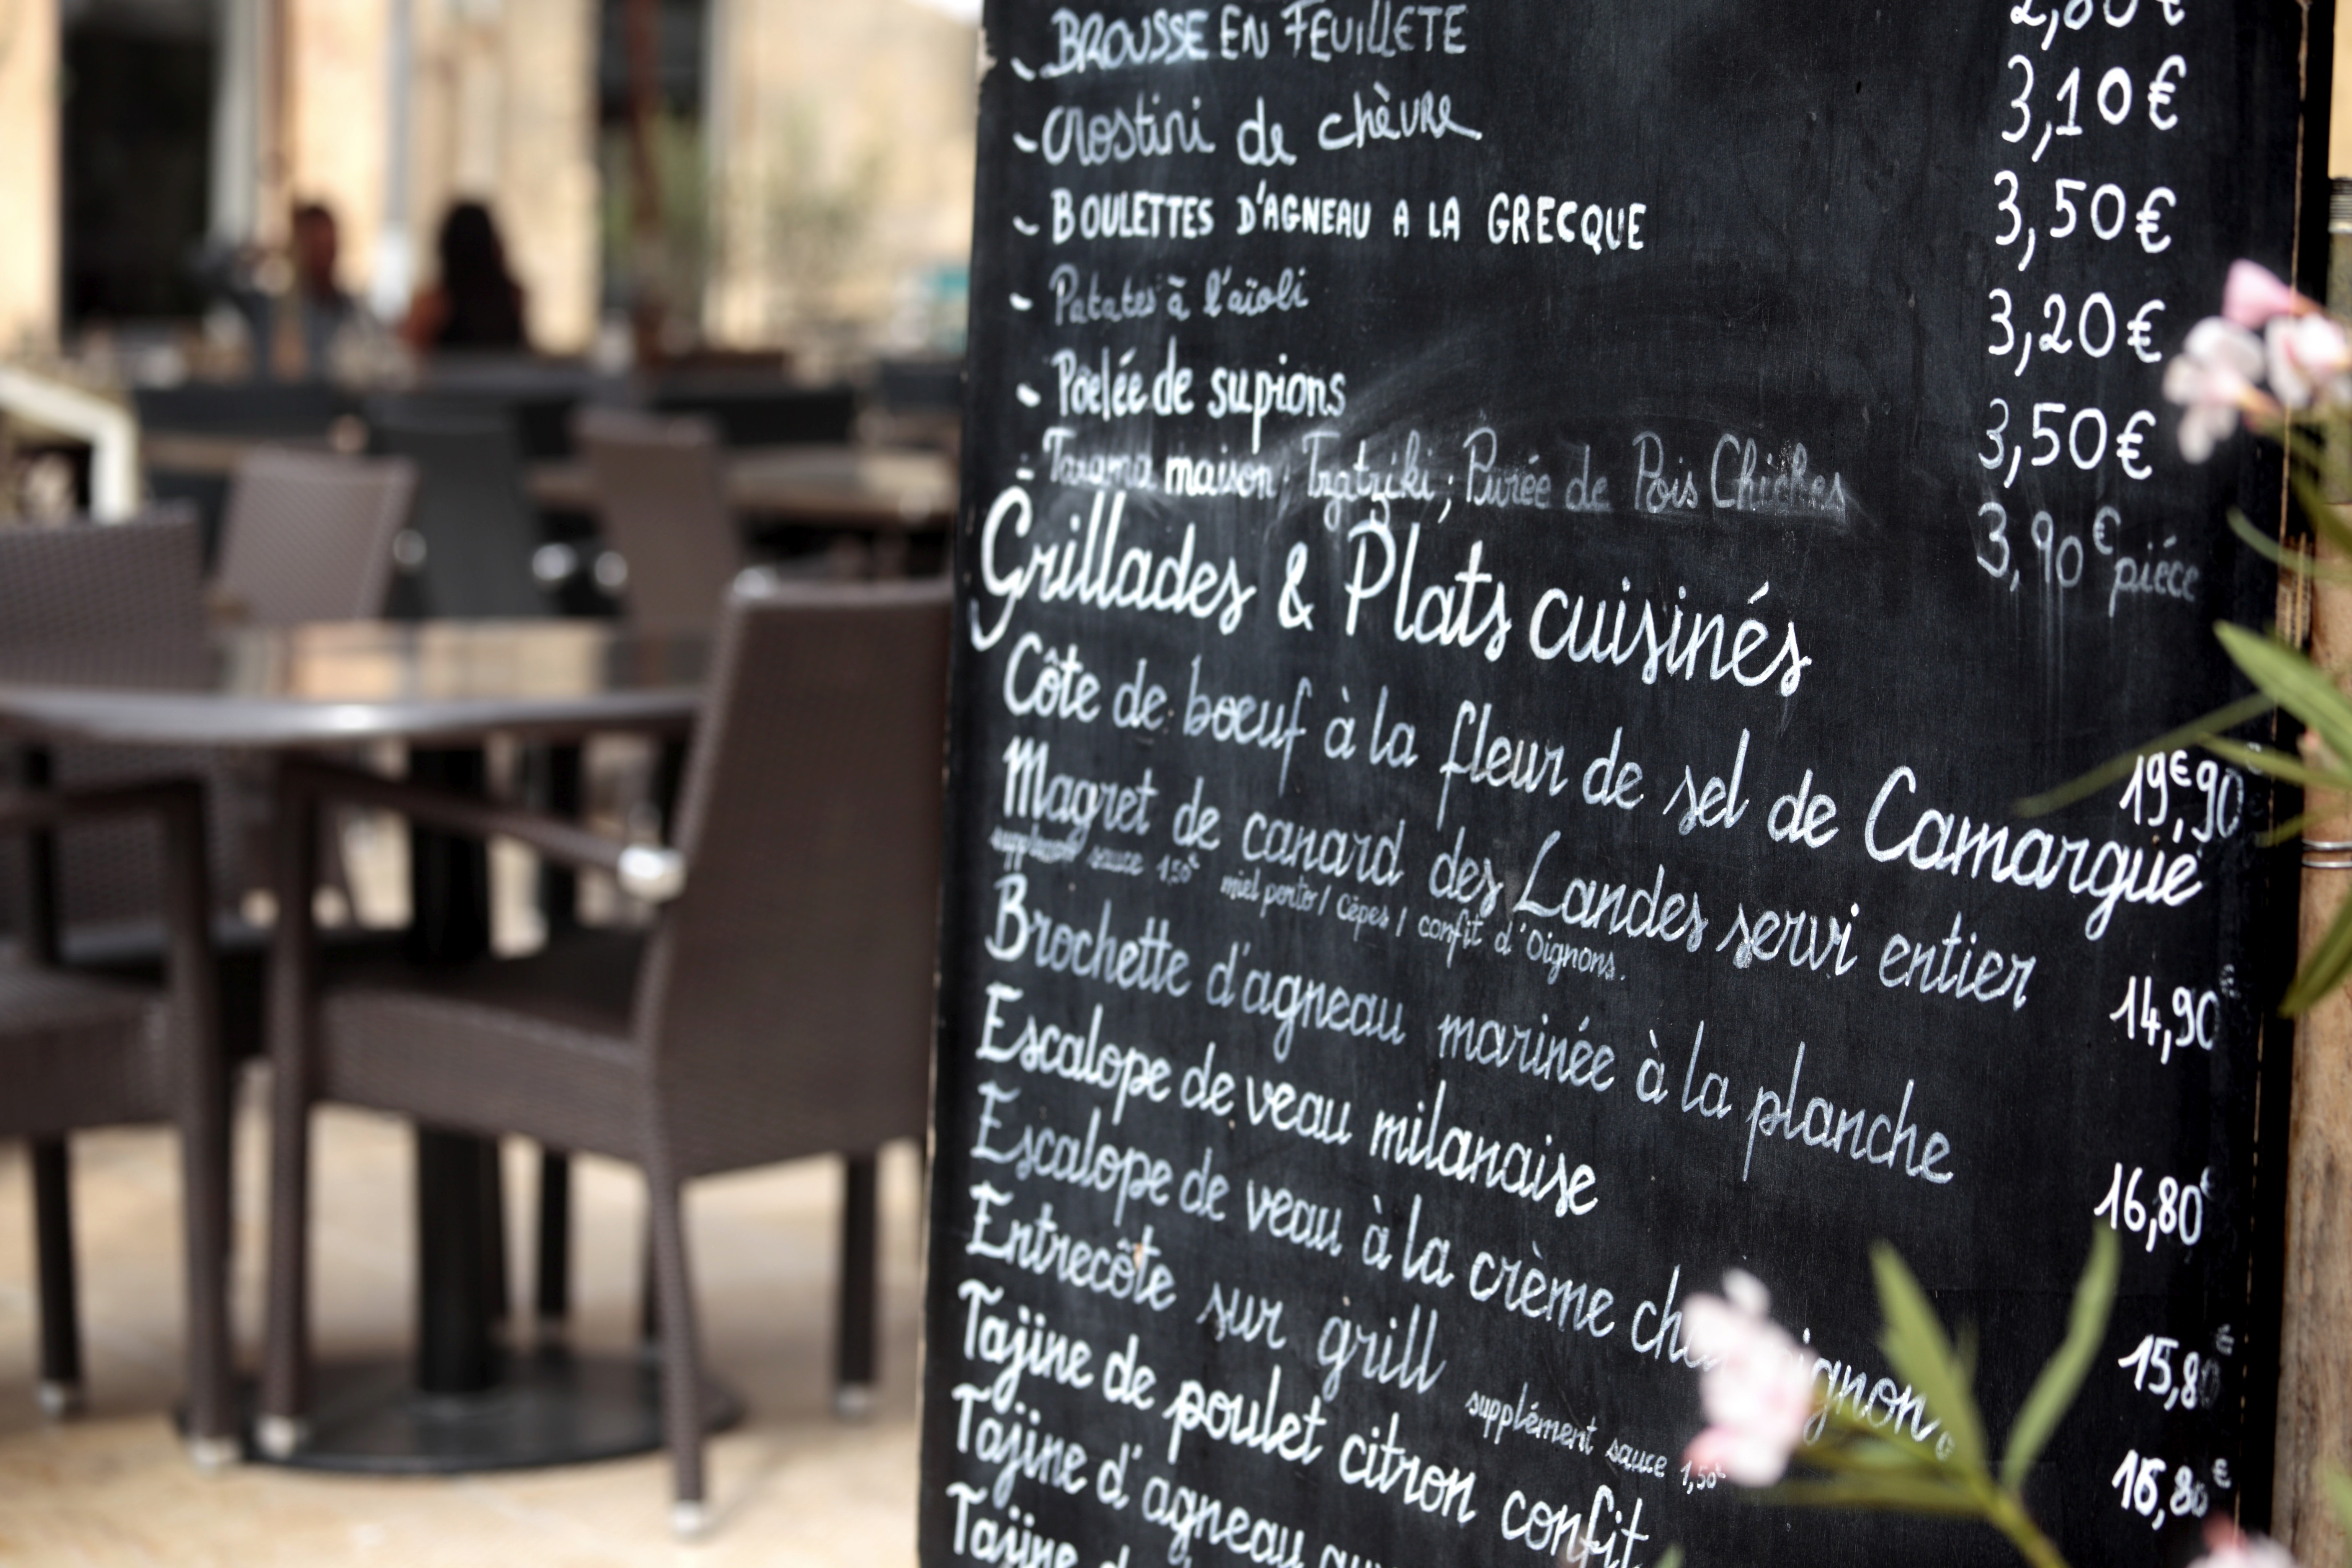 - BROUSSE EN FEUILLETE
- Crostini de chèvre 3,10€
- BOULETTES D'AGNEAU A LA GRECQUE 3,50€
- Patates à l'aïoli 3,20€
- Poelée de supions 3,50€
- Tarama maison; Tzatziki; Purée de Pois Chiches 3,90€ piéce
Grillades & Plats cuisinés
Côte de boeuf à la fleur de sel de Camargue 19€,90
Magret de canard des Landes servi entier 14,90€
supplément sauce 1,50€ miel porto / Cèpes / confit d'Oignons.
Brochette d'agneau marinée à la planche 16,80€
Escalope de veau milanaise
Escalope de veau à la crème 15,80€
Entrecôte sur grill supplément sauce 1,50€ €
Tajine de poulet citron confit
Tajine d'agneau
Tajine